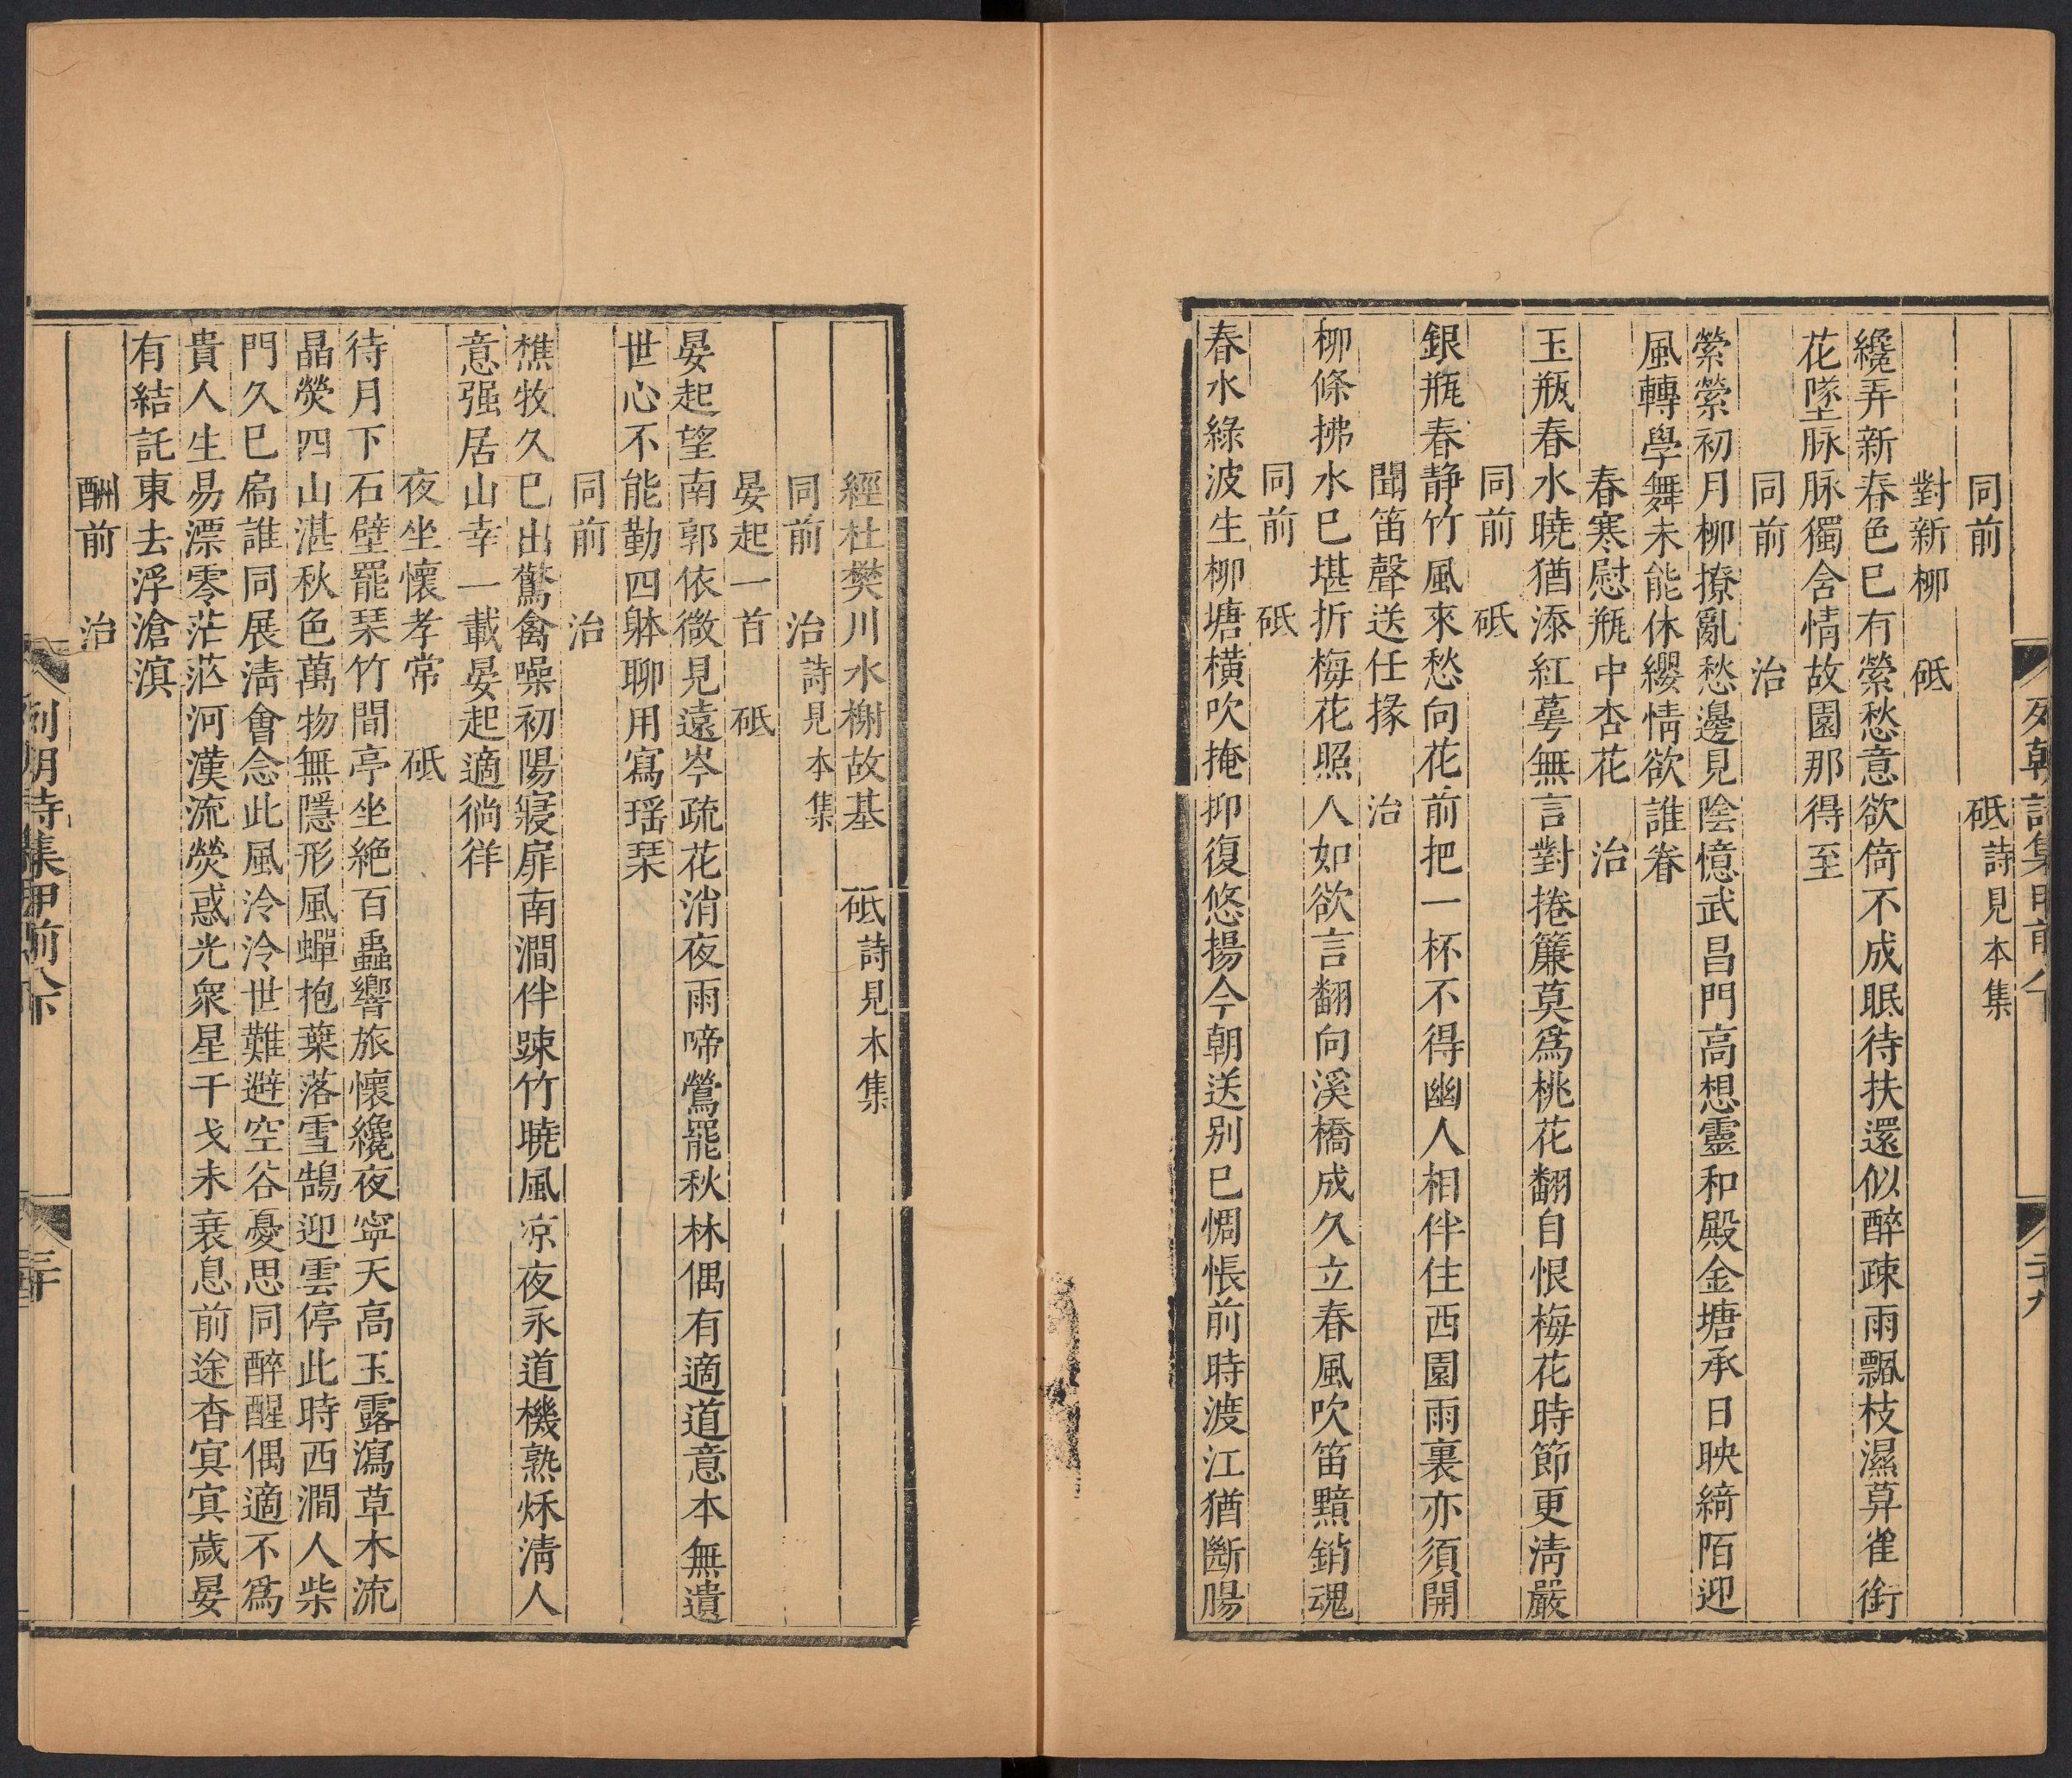 列朝詩集甲前八下 二十九
同前 砥詩見本集
對新柳 砥
纔弄新春色已有縈愁意欲倚不成眠待扶還似醉疎雨飄枝濕算雀銜
花墜脉脉獨含情故園那得至
同前 治
縈縈初月柳撩亂愁邊見陰憶武昌門高想靈和殿金塘承日映綺陌迎
風轉學舞未能休纓情欲誰眷
春寒慰瓶中杏花 治
玉瓶春水曉猶添紅萼無言對捲簾莫爲桃花翻自恨梅花時節更淸嚴
同前 砥
銀瓶春静竹風來愁向花前把一杯不得幽人相伴住西園雨裏亦須開
聞笛聲送任掾 治
柳條拂水巳堪折梅花照人如欲言翻向溪橋成久立春風吹笛黯銷魂
同前 砥
春水綠波生柳塘橫吹掩抑復悠揚今朝送别巳惆悵前時渡江猶斷腸
經杜樊川水榭故基 砥詩見本集
同前 治詩見本集
晏起一首 砥
晏起望南郭依微見遠岑疏花消夜雨啼鶯罷秋林偶有適道意本無遺
世心不能勤四躰聊用寫瑶琹
同前 治
樵牧久巳出驚禽噪初陽寢扉南澗伴踈竹曉風凉夜永道機熟秌淸人
意强居山幸一載晏起適徜徉
夜坐懷孝常 砥
待月下石壁罷琹竹間亭坐絶百蟲響旅懷纔夜寧天高玉露瀉草木流
晶熒四山湛秋色萬物無隱形風蟬抱葉落雪鵠迎雲停此時西澗人柴
門久巳扃誰同展淸會念此風泠泠世難避空谷憂思同醉醒偶適不爲
貴人生易漂零茫茫河漢流熒惑光衆星干戈未衰息前途杳冥冥歲晏
有結託東去浮滄溟
酬前 治
列朝詩集甲前八下 三十